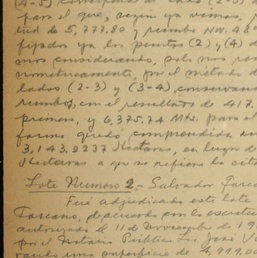 (4-5) corresponde al lado (2-3) d
para el que, según ya vimos, p
tud de 5,777.80 y rumbo NW. 48
fijados ya los puntos (2) y (4) d
mos considerando, solo nos res
nométricamente, por el método
lados (2-3) y (3-4) conservan
rumbos, con el resultado de 417.
primero, y 6,375.74 Mts. para el
forma quedó comprendida un
3,143.9237 Hectáreas, en lugar d
Hectáreas a que se refiere la cit
Lote Número 2.- Salvador Tarca
Fué adjudicado este lote
Tarcano, de acuerdo con la escritu
autorizada el 11 de Noviembre de 19
por el Notario Público Lic. José V
rando una superficie de 4,999.0